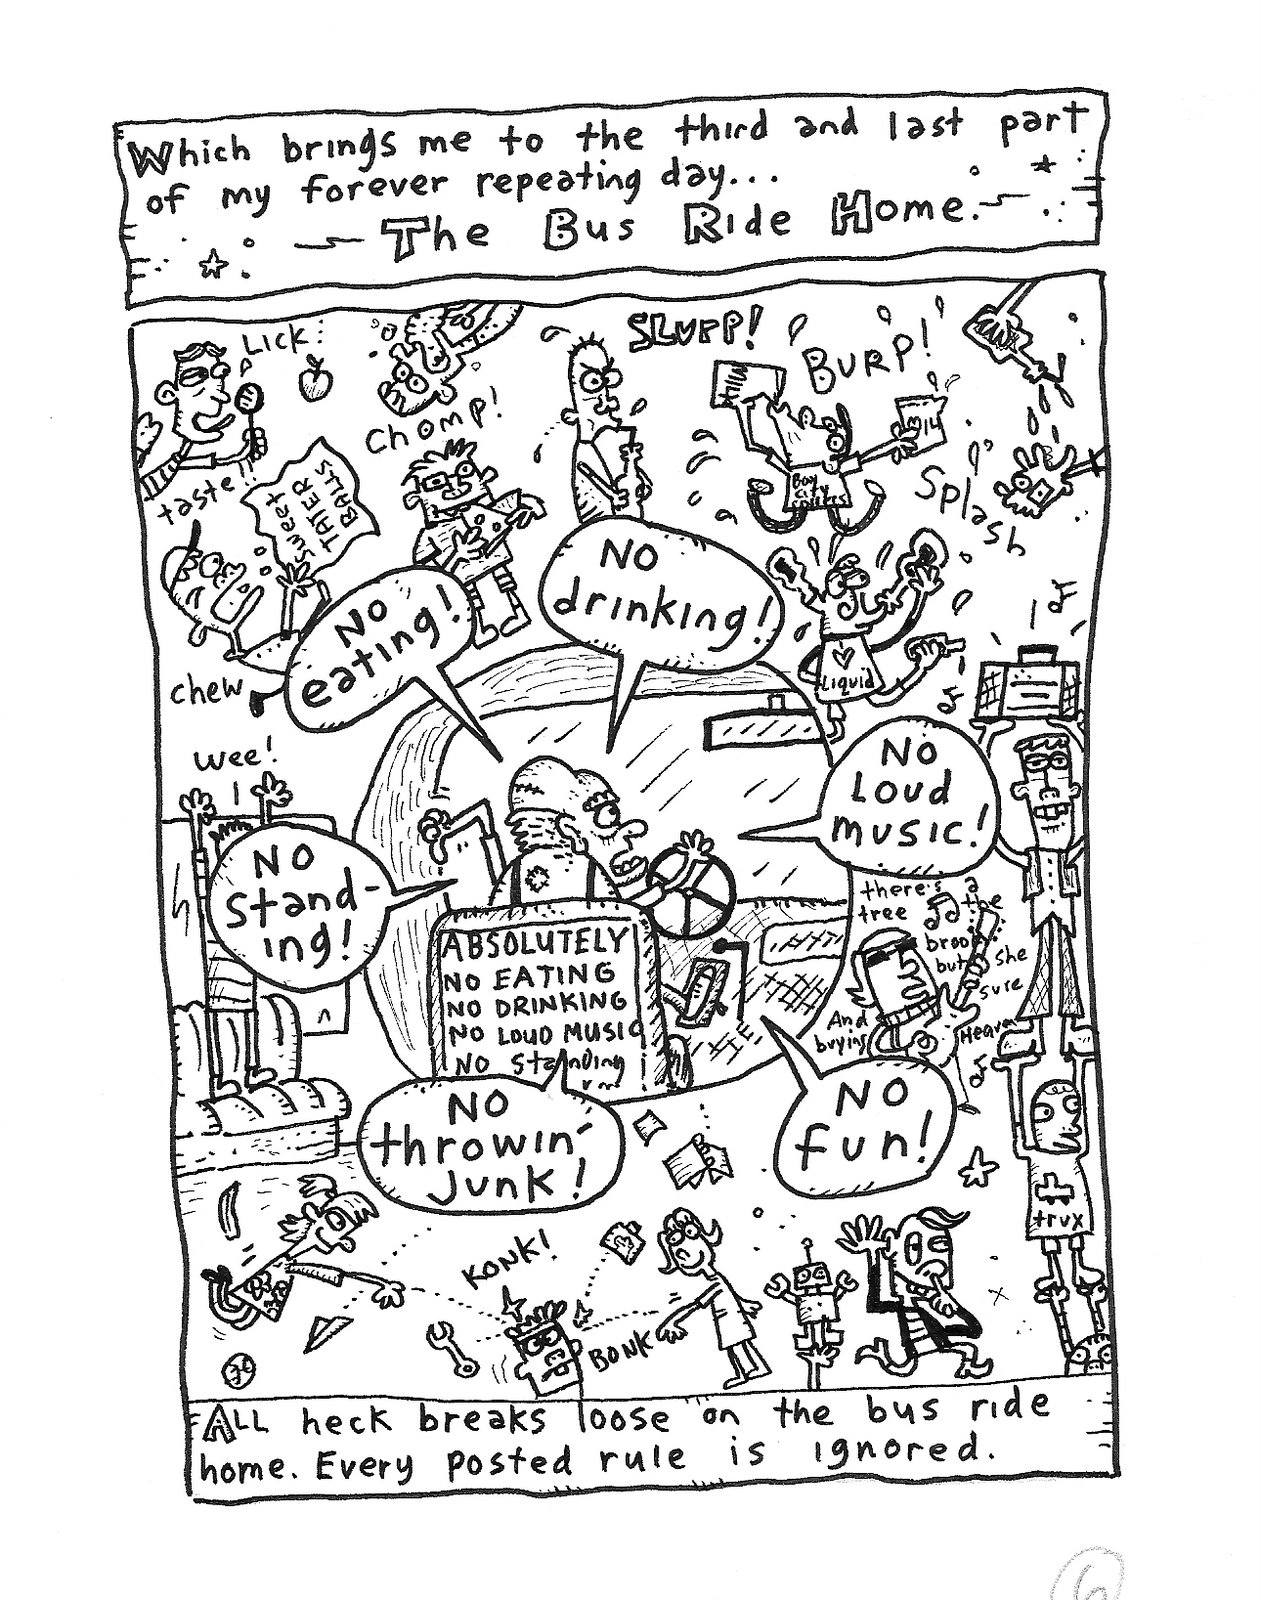 Which brings me to the third and last part
of my forever repeating day...
The Bus Ride Home.
Lick
SLURP!
BURP!
Chomp!
taste!!
SWEET
TATER
BALLS
milk
Boy
city
Splash
NO
eating!
NO
drinking!
Liquid
chew
wee!
NO
Loud
music!
NO
stand-
ing!
there's a
tree
the
brook
but she
sure
And
buying
Heaven
ABSOLUTELY
NO EATING
NO DRINKING
NO LOUD MUSIC
NO Standing
NO
throwin'
JUNK!
NO
fun!
trux
KONK!
BONK
ALL heck breaks loose on the bus ride
home. Every posted rule is ignored.
6